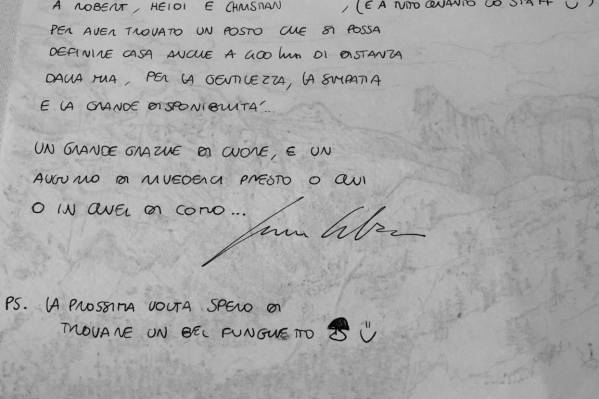 A ROBERT, HEIDI E CHRISTIAN , (E A TUTTO QUANTO LO STAFF ☺)
PER AVER TROVATO UN POSTO CHE SI POSSA
DEFINIRE CASA ANCHE A 400 km DI DISTANZA
DALLA MIA, PER LA GENTILEZZA, LA SIMPATIA
E LA GRANDE DISPONIBILITA'...
UN GRANDE GRAZIE DI CUORE, E UN
AUGURIO DI RIVEDERCI PRESTO O QUI
O IN QUEL DI COMO...
PS. LA PROSSIMA VOLTA SPERO DI
TROVARE UN BEL FUNGHETTO